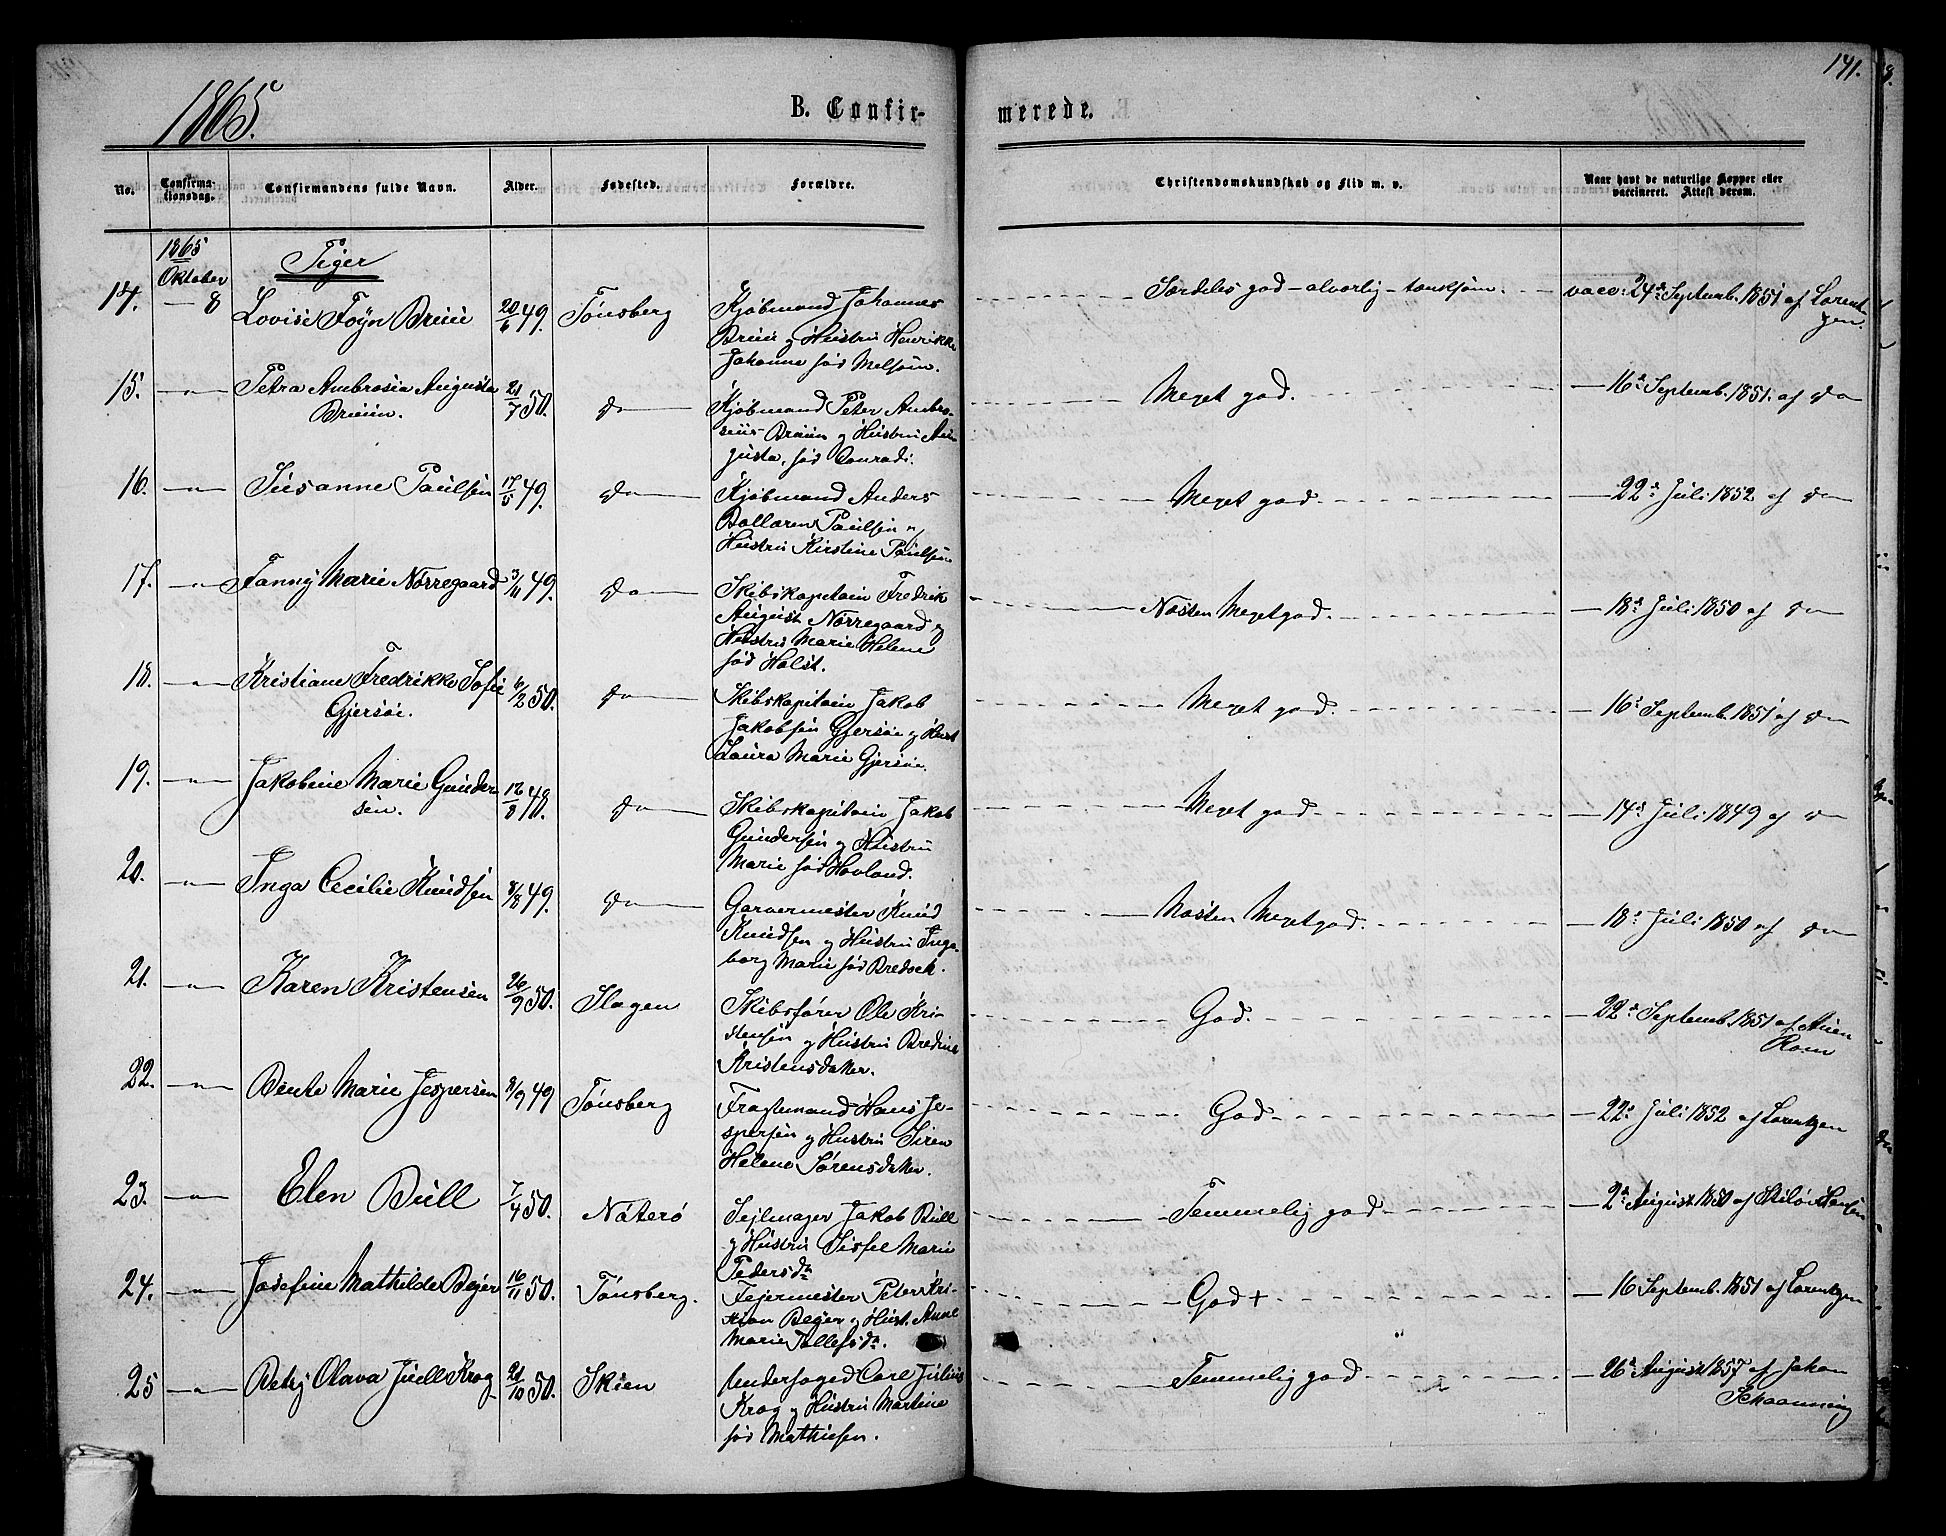 1865.
B. Confir-
merede.
141.
No.
Confirma-
tionsdag.
Confirmandens fulde Navn.
Alder.
Fødested.
Forældre.
Christendomskundskab og Flid m. v.
Naar havt de naturlige Kopper eller
vaccineret. Attest derom.
1865
Oktober
Piger
14. — 8 Lovise Foÿn Brüü 20/6 49. Tönsberg
Kjöbmand Johannes
Brüü og Hustru Henrikke
Johanne fød Melsom.
Særdeles god – alvorlig – tænksom. vacc: 24de Septemb. 1851 af Lorent
zen.
15. — " — Petra Ambrosia Augusta
Brüün. 21/7 50. do
Kjöbmand Peter Ambro-
siüs Brüün og Hustru Aü
gusta, fød Conradi.
Meget god. — 16de Septemb. 1851. af do
16. — " — Susanne Paulsen 17/5 49. do
Kjöbmand Anders
Paulsen og
Hustru Kirstine Paulsen
Meget god — 22de Juli 1852 af do
17. — " — Fanny Marie Nörregaard 3/11 49. do
Skibskapitain Fredrik
August Nörregaard og
Hustru Marie Helene
fød Holst.
Næsten Meget god. — 18de Juli 1850 af do
18. — " — Kristiane Fredrikke Sofie
Gjersöe. 6/2 50. do
Skibskapitain Jakob
Jakobsen Gjersöe og Hust
Laura Marie Gjersöe.
Meget god. — 16de Septemb. 1851 af do
19. — " — Jakobine Marie Gunder
sen. 12/8 48. do
Skibskapitain Jakob
Gundersen og Hustru
Marie fød Hovland.
Meget god — 14de Juli 1849 af do
20. — " — Inga Cecilie Knudsen 8/8 49. do
Garvermester Knud
Knudsen og Hustru Inge-
borg Marie fød Bredsek.
Næsten Meget god. — 18de Juli 1850 af do
21. — " — Karen Kristensen 26/9 50. Slagen
Skibsfører Ole Kri-
stensen og Hustru Bredine
Kristensdatter.
God. — 22de Septemb. 1851 af
22. — " — Bente Marie Jespersen 8/9 49 Tönsberg
Fragtemand Hans Je-
spersen og Hustru Siren
Helene Sörensdatter.
God — 22de Juli 1852 af Lorentzen
23. — " — Elen Bull 7/4 50. Nöterö
Sejlmager Jakob Bull
og Hustru Sissel Marie
Pedersdtr
Temmelig god — 2de August 1850 af
24. — " — Josefine Mathilde Bejer 16/11 50. Tönsberg.
Fejermester Peter Kri-
stian Bejer og Hust. Anne
Marie Tollefsdtr.
God + — 16 Septemb. 1851 af Lorentzen
25 — " — Betzy Olava Juell Krog 21/10 50. Skien
Underfoged Carl Julius
Krog og Hustru Martine
fød Mathiesen.
Temmelig god — 26de August 1857 af Johan
Schaanning